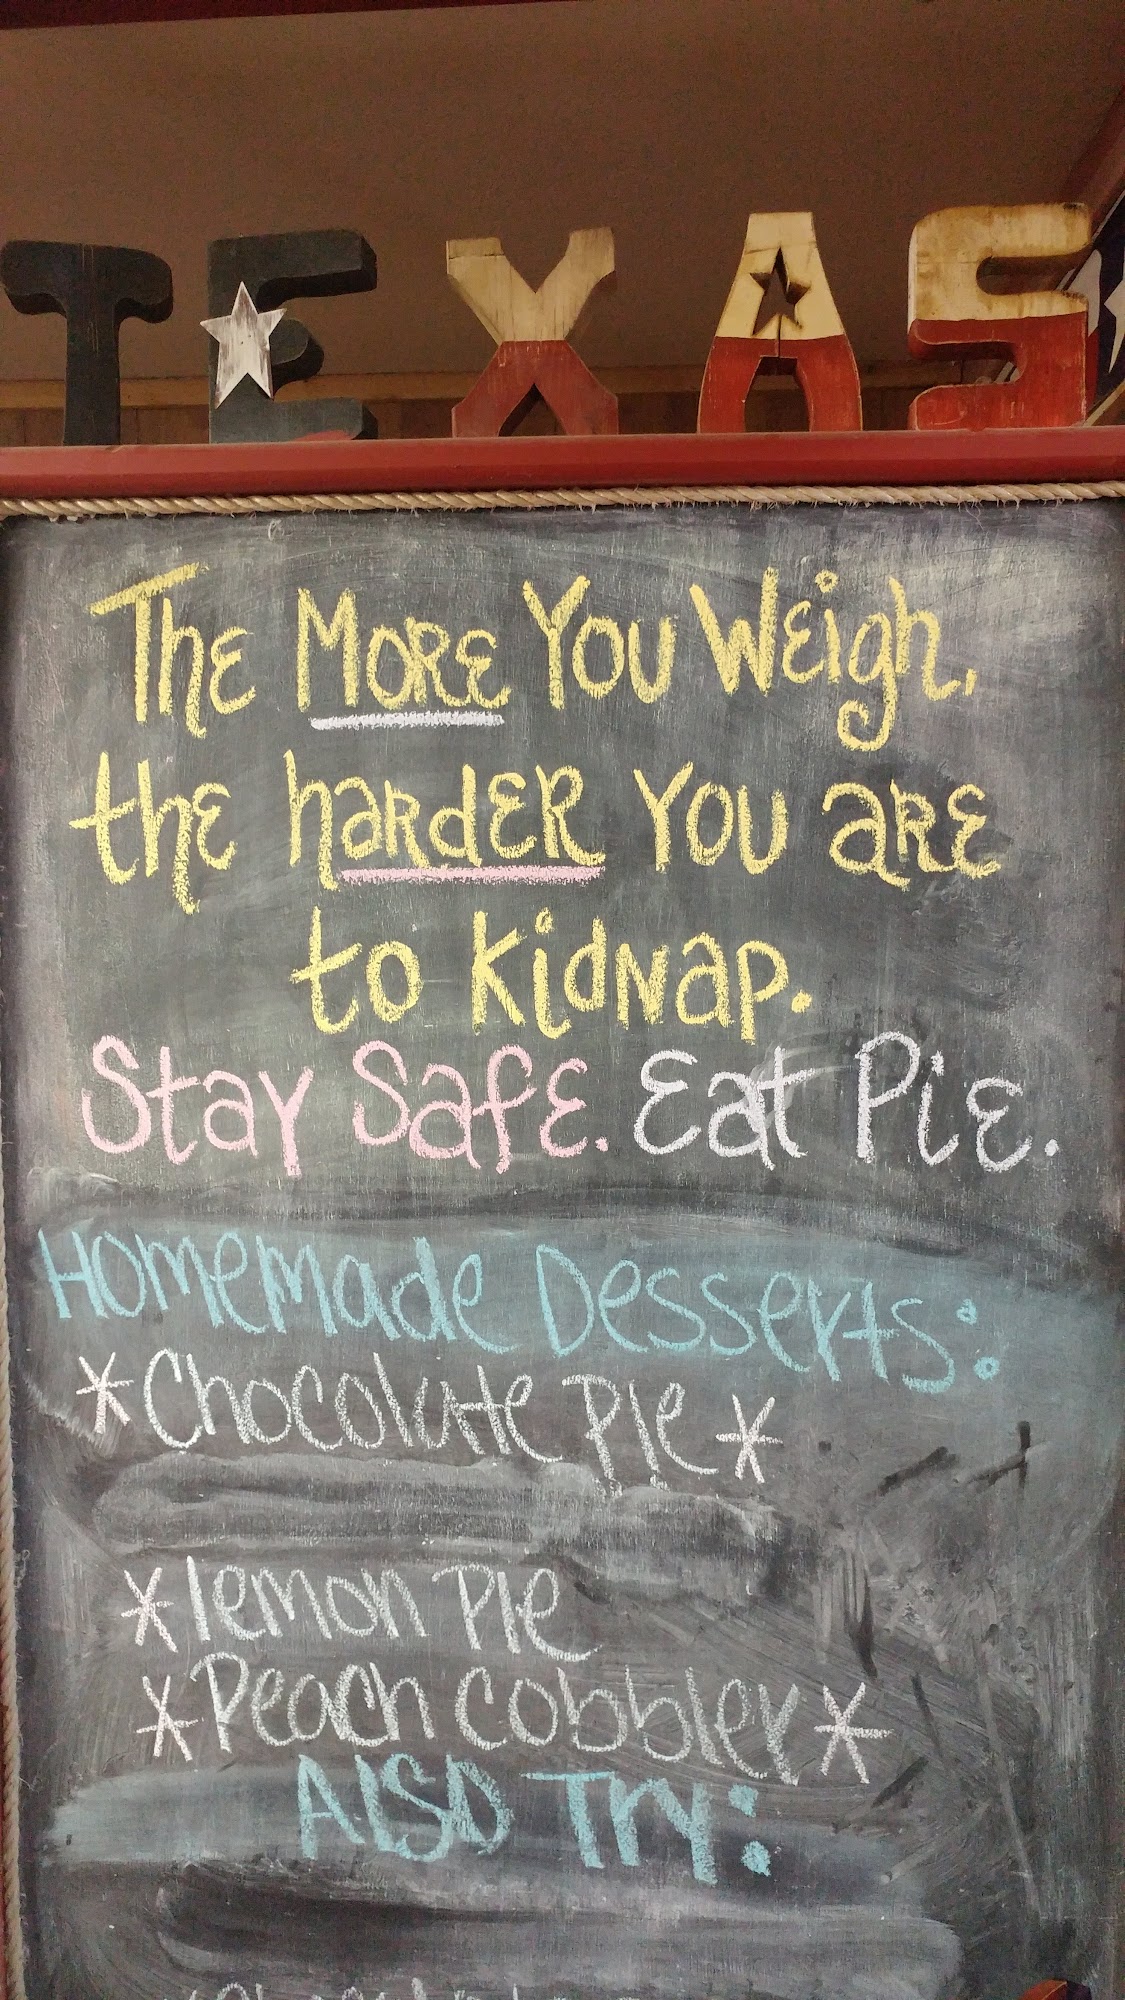 TEXAS
The MORE YOU Weigh,
the harder You are
to kidnap.
Stay Safe. Eat Pie.
Homemade Desserts:
*Chocolate Pie*
*lemon Pie
*Peach Cobbler*
Also Try: